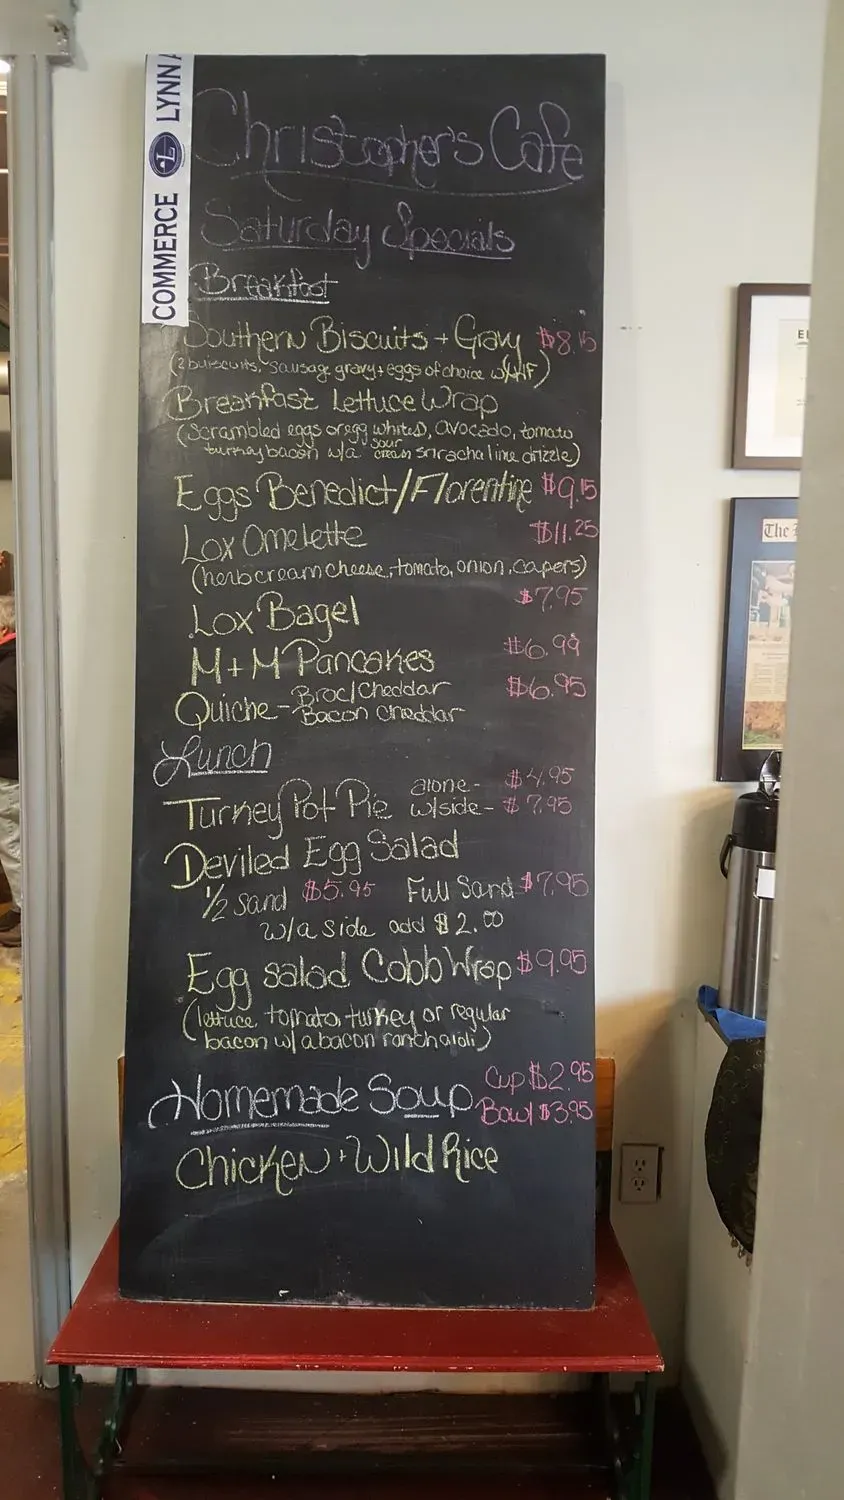 COMMERCE L LYNN
Christopher's Cafe
Saturday Specials
Breakfast
Southern Biscuits + Gravy $8.15
(2 buiscuits, sausage gravy + eggs of choice w/HF)
Breakfast Lettuce Wrap
(scrambled eggs or egg whites, avocado, tomato
turkey bacon w/a sour cream sriracha lime drizzle)
Eggs Benedict/Florentine $9.15
Lox Omelette $11.25
(herb cream cheese, tomato, onion, capers)
Lox Bagel $7.95
M+M Pancakes $6.99
Quiche - Broc/Cheddar $6.95
Bacon cheddar
Lunch
Turkey Pot Pie alone - $4.95
w/side - $7.95
Deviled Egg Salad
1/2 Sand $5.95 Full Sand $7.95
w/a side add $2.00
Egg salad Cobb Wrap $9.95
(lettuce, tomato, turkey or regular
bacon w/ a bacon ranch aioli)
Homemade Soup Cup $2.95
Bowl $3.95
Chicken + Wild Rice
The